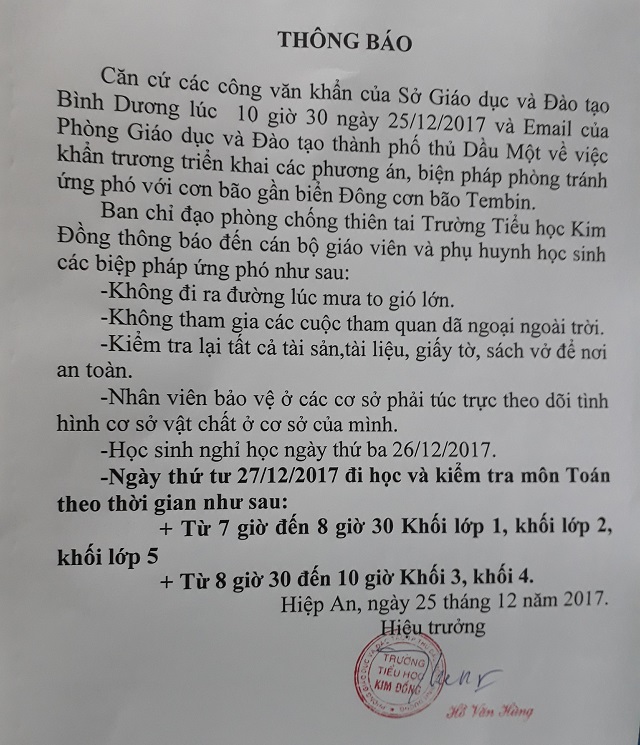 THÔNG BÁO
Căn cứ các công văn khẩn của Sở Giáo dục và Đào tạo
Bình Dương lúc 10 giờ 30 ngày 25/12/2017 và Email của
Phòng Giáo dục và Đào tạo thành phố thủ Dầu Một về việc
khẩn trương triển khai các phương án, biện pháp phòng tránh
ứng phó với cơn bão gần biển Đông cơn bão Tembin.
Ban chỉ đạo phòng chống thiên tai Trường Tiểu học Kim
Đồng thông báo đến cán bộ giáo viên và phụ huynh học sinh
các biệp pháp ứng phó như sau:
-Không đi ra đường lúc mưa to gió lớn.
-Không tham gia các cuộc tham quan dã ngoại ngoài trời.
-Kiểm tra lại tất cả tài sản,tài liệu, giấy tờ, sách vở để nơi
an toàn.
-Nhân viên bảo vệ ở các cơ sở phải túc trực theo dõi tình
hình cơ sở vật chất ở cơ sở của mình.
-Học sinh nghỉ học ngày thứ ba 26/12/2017.
-Ngày thứ tư 27/12/2017 đi học và kiểm tra môn Toán
theo thời gian như sau:
+ Từ 7 giờ đến 8 giờ 30 Khối lớp 1, khối lớp 2,
khối lớp 5
+ Từ 8 giờ 30 đến 10 giờ Khối 3, khối 4.
Hiệp An, ngày 25 tháng 12 năm 2017.
Hiệu trưởng
TRƯỜNG
TIỂU HỌC
KIM ĐỒNG
Hồ Văn Hùng